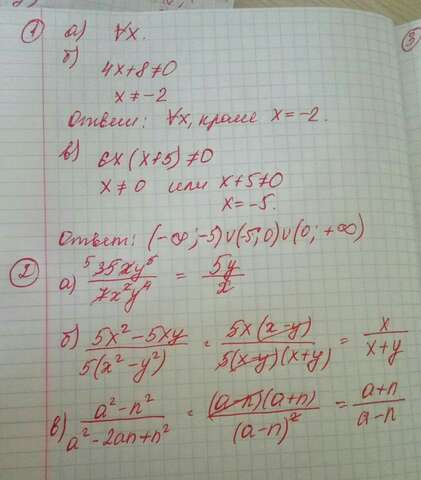 1 а) ∀x.
б)
4x+8≠0
x≠-2
Ответ: ∀x, кроме x=-2.
в) 6x(x+5)≠0
x≠0 или x+5≠0
x=-5.
Ответ: (-∞;-5)∪(-5;0)∪(0;+∞)
2 а) 5 35xy⁵/7x²y⁴ = 5y/x
б) 5x²-5xy/5(x²-y²) = 5x(x-y)/5(x-y)(x+y) = x/x+y
в) a²-n²/a²-2an+n² = (a-n)(a+n)/(a-n)² = a+n/a-n
3